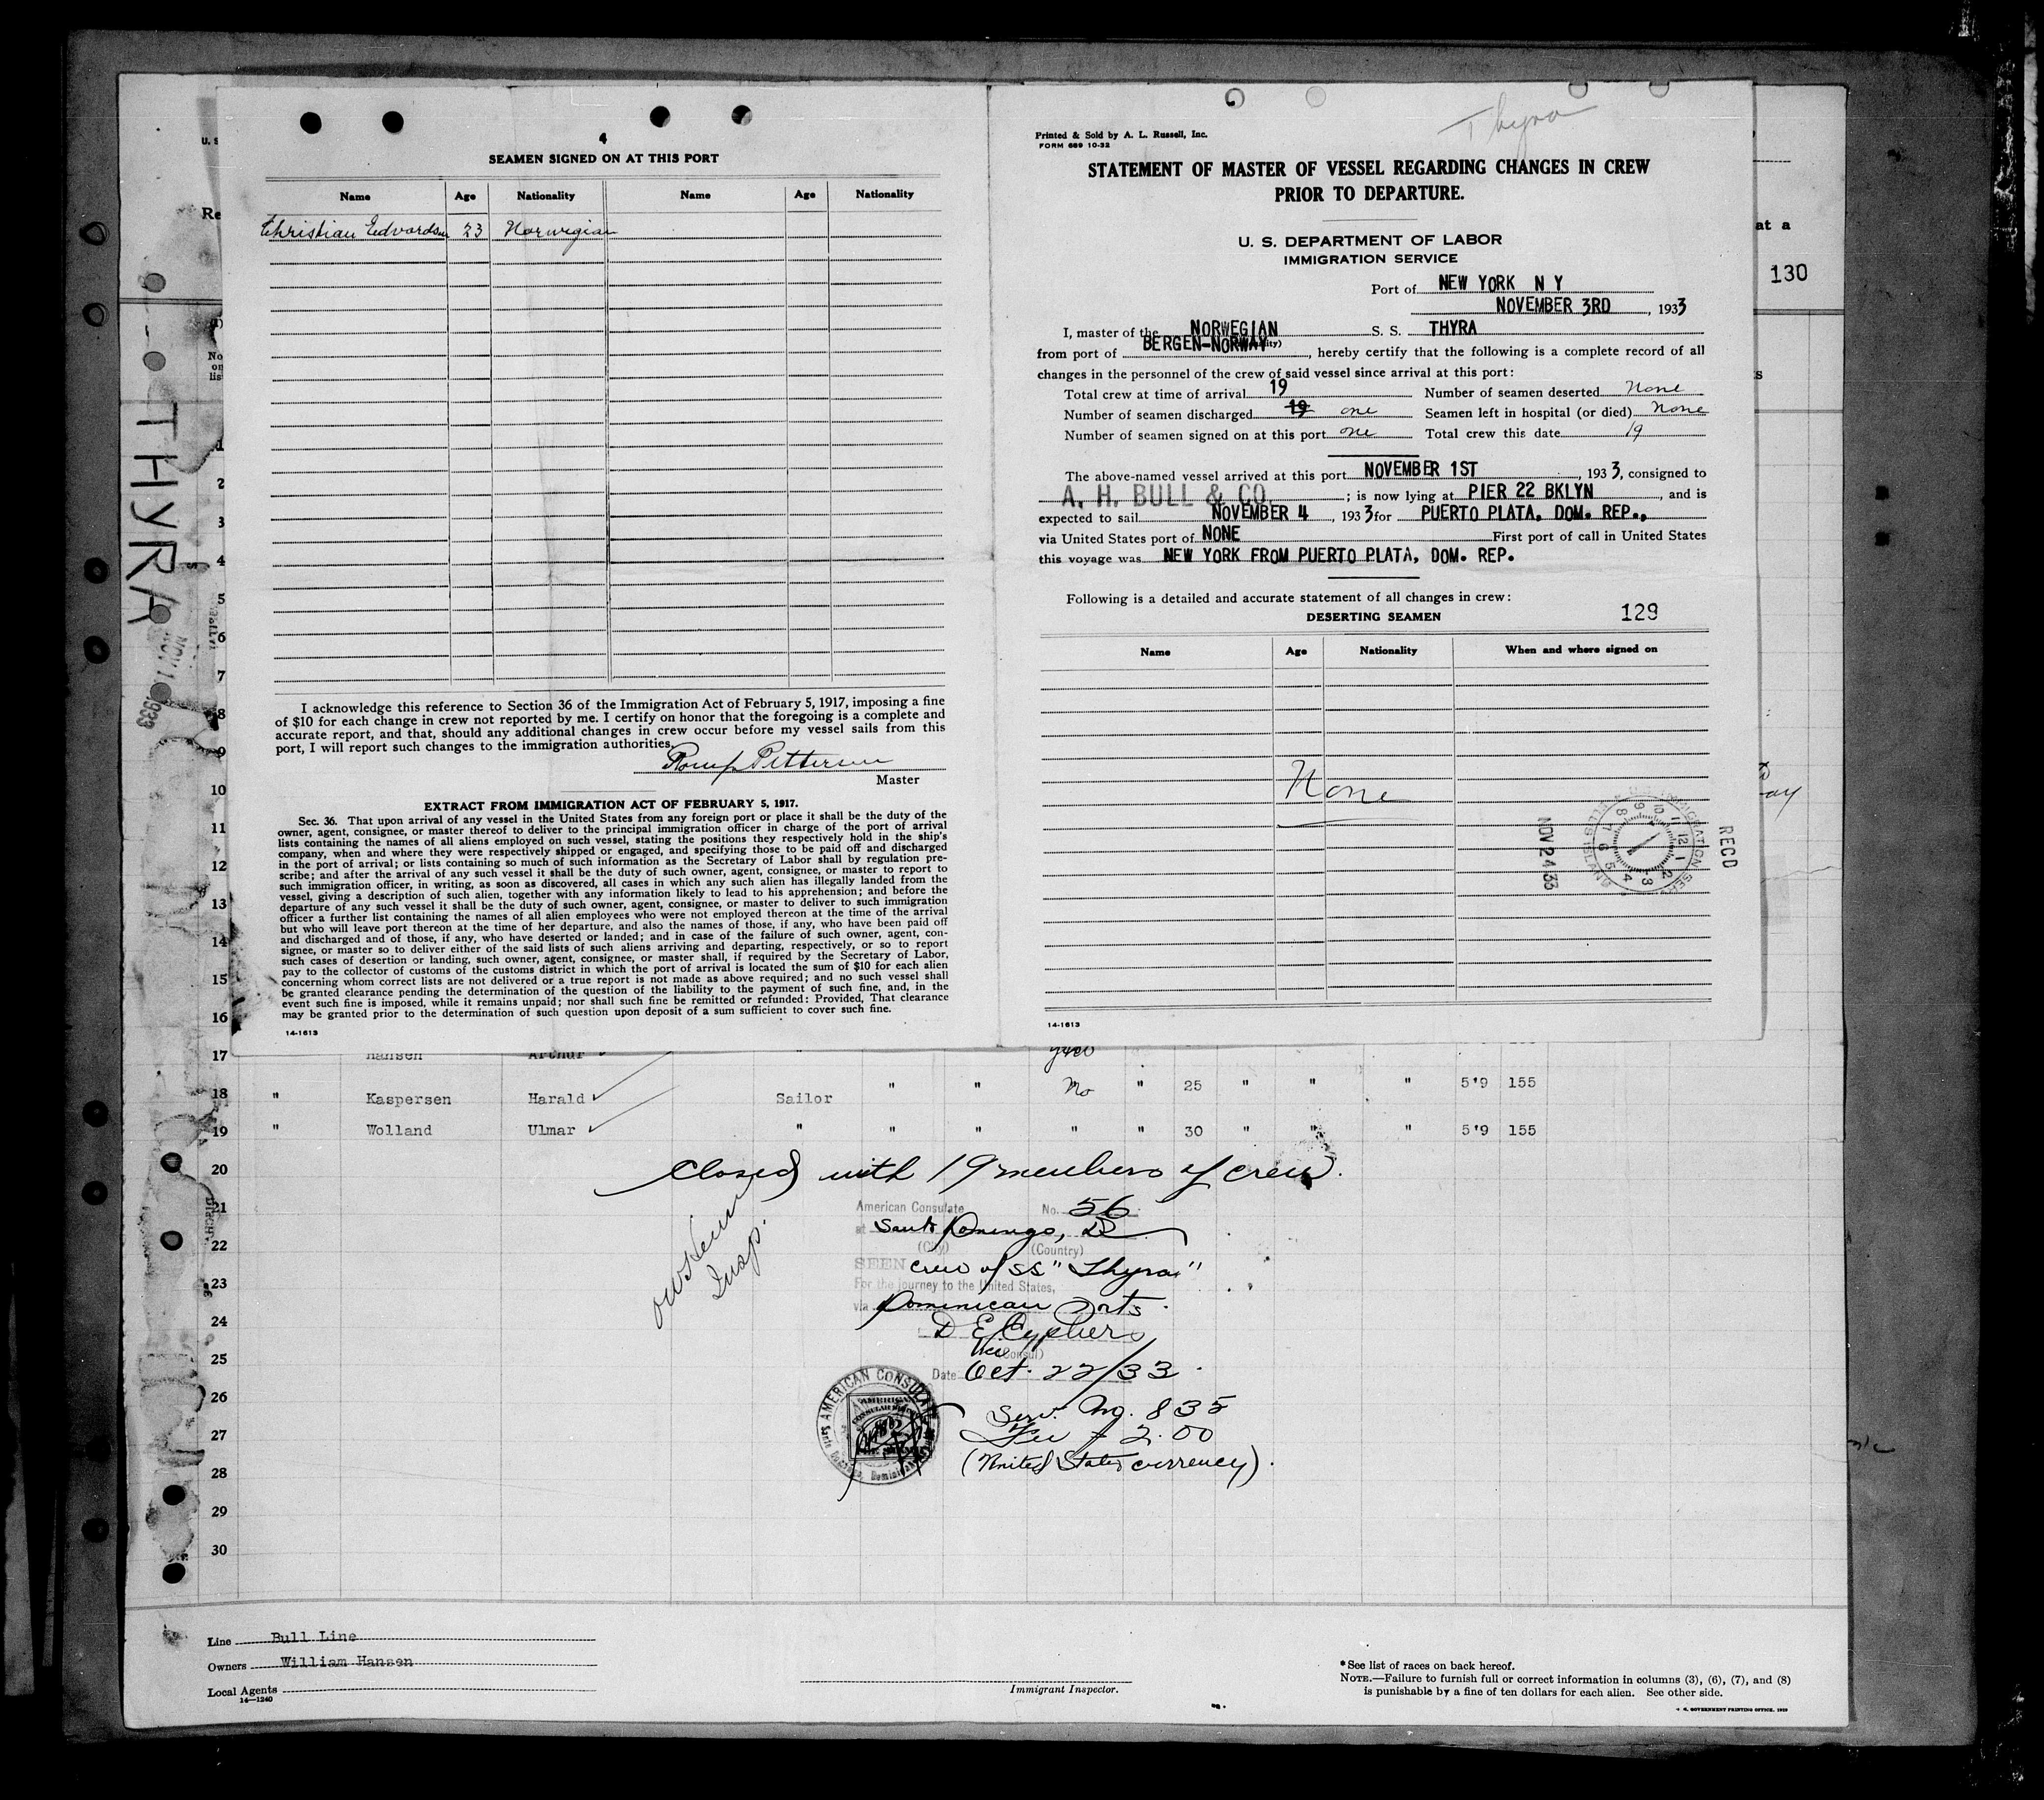 4
SEAMEN SIGNED ON AT THIS PORT
Name Age Nationality Name Age Nationality
Christian Edvardsen 23 Norwegian
I acknowledge this reference to Section 36 of the Immigration Act of February 5, 1917, imposing a fine
of $10 for each change in crew not reported by me. I certify on honor that the foregoing is a complete and
accurate report, and that, should any additional changes in crew occur before my vessel sails from this
port, I will report such changes to the immigration authorities.
Pettersen
Master
EXTRACT FROM IMMIGRATION ACT OF FEBRUARY 5, 1917.
Sec. 36. That upon arrival of any vessel in the United States from any foreign port or place it shall be the duty of the
owner, agent, consignee, or master thereof to deliver to the principal immigration officer in charge of the port of arrival
lists containing the names of all aliens employed on such vessel, stating the positions they respectively hold in the ship's
company, when and where they were respectively shipped or engaged, and specifying those to be paid off and discharged
in the port of arrival; or lists containing so much of such information as the Secretary of Labor shall by regulation pre-
scribe; and after the arrival of any such vessel it shall be the duty of such owner, agent, consignee, or master to report to
such immigration officer, in writing, as soon as discovered, all cases in which any such alien has illegally landed from the
vessel, giving a description of such alien, together with any information likely to lead to his apprehension; and before the
departure of any such vessel it shall be the duty of such owner, agent, consignee, or master to deliver to such immigration
officer a further list containing the names of all alien employees who were not employed thereon at the time of the arrival
but who will leave port thereon at the time of her departure, and also the names of those, if any, who have been paid off
and discharged and of those, if any, who have deserted or landed; and in case of the failure of such owner, agent, con-
signee, or master so to deliver either of the said lists of such aliens arriving and departing, respectively, or so to report
such cases of desertion or landing, such owner, agent, consignee, or master shall, if required by the Secretary of Labor,
pay to the collector of customs of the customs district in which the port of arrival is located the sum of $10 for each alien
concerning whom correct lists are not delivered or a true report is not made as above required; and no such vessel shall
be granted clearance pending the determination of the question of the liability to the payment of such fine, and, in the
event such fine is imposed, while it remains unpaid; nor shall such fine be remitted or refunded: Provided, That clearance
may be granted prior to the determination of such question upon deposit of a sum sufficient to cover such fine.
14-1613
Thyra
Printed & Sold by A. L. Russell, Inc.
FORM 689 10-32
STATEMENT OF MASTER OF VESSEL REGARDING CHANGES IN CREW
PRIOR TO DEPARTURE.
U. S. DEPARTMENT OF LABOR
IMMIGRATION SERVICE
Port of NEW YORK N Y
NOVEMBER 3RD, 1933
I, master of the NORWEGIAN S. S. THYRA
from port of BERGEN-NORWAY, hereby certify that the following is a complete record of all
changes in the personnel of the crew of said vessel since arrival at this port:
Total crew at time of arrival 19 Number of seamen deserted None
Number of seamen discharged 19 one Seamen left in hospital (or died) None
Number of seamen signed on at this port one Total crew this date 19
The above-named vessel arrived at this port NOVEMBER 1ST, 1933, consigned to
A. H. BULL & CO. ; is now lying at PIER 22 BKLYN, and is
expected to sail NOVEMBER 4, 1933 for PUERTO PLATA, DOM. REP.,
via United States port of NONE First port of call in United States
this voyage was NEW YORK FROM PUERTO PLATA, DOM. REP.
Following is a detailed and accurate statement of all changes in crew:
DESERTING SEAMEN 129
Name Age Nationality When and where signed on
None
RECD
NOV 24 33
14-1613
at a
130
THYRA
NOV 1 1933
1
2
3
4
5
6
7
8
9
10
11
12
13
14
15
16
17 Hansen Arthur "
18 " Kaspersen Harald Sailor " " No " 25 " " " 5'9 155
19 " Wolland Ulmar " " " " " 30 " " " 5'9 155
20
Closed with 19 members of crew.
21
22
23
24
25
26
27
28
29
30
Insp.
American Consulate No. 56
at Santo Domingo, DR
(City) (Country)
SEEN crew of SS "Thyra"
For the journey to the United States,
via Dominican Ports.
D E Cyphers
Vice (Consul)
Date Oct. 22/33
AMERICAN CONSULATE
Serv. No. 835
Fee $2.00
(United States currency).
Line Bull Line
Owners William Hansen
Local Agents
14—1240
Immigrant Inspector.
*See list of races on back hereof.
NOTE.—Failure to furnish full or correct information in columns (3), (6), (7), and (8)
is punishable by a fine of ten dollars for each alien. See other side.
U. S. GOVERNMENT PRINTING OFFICE. 1929